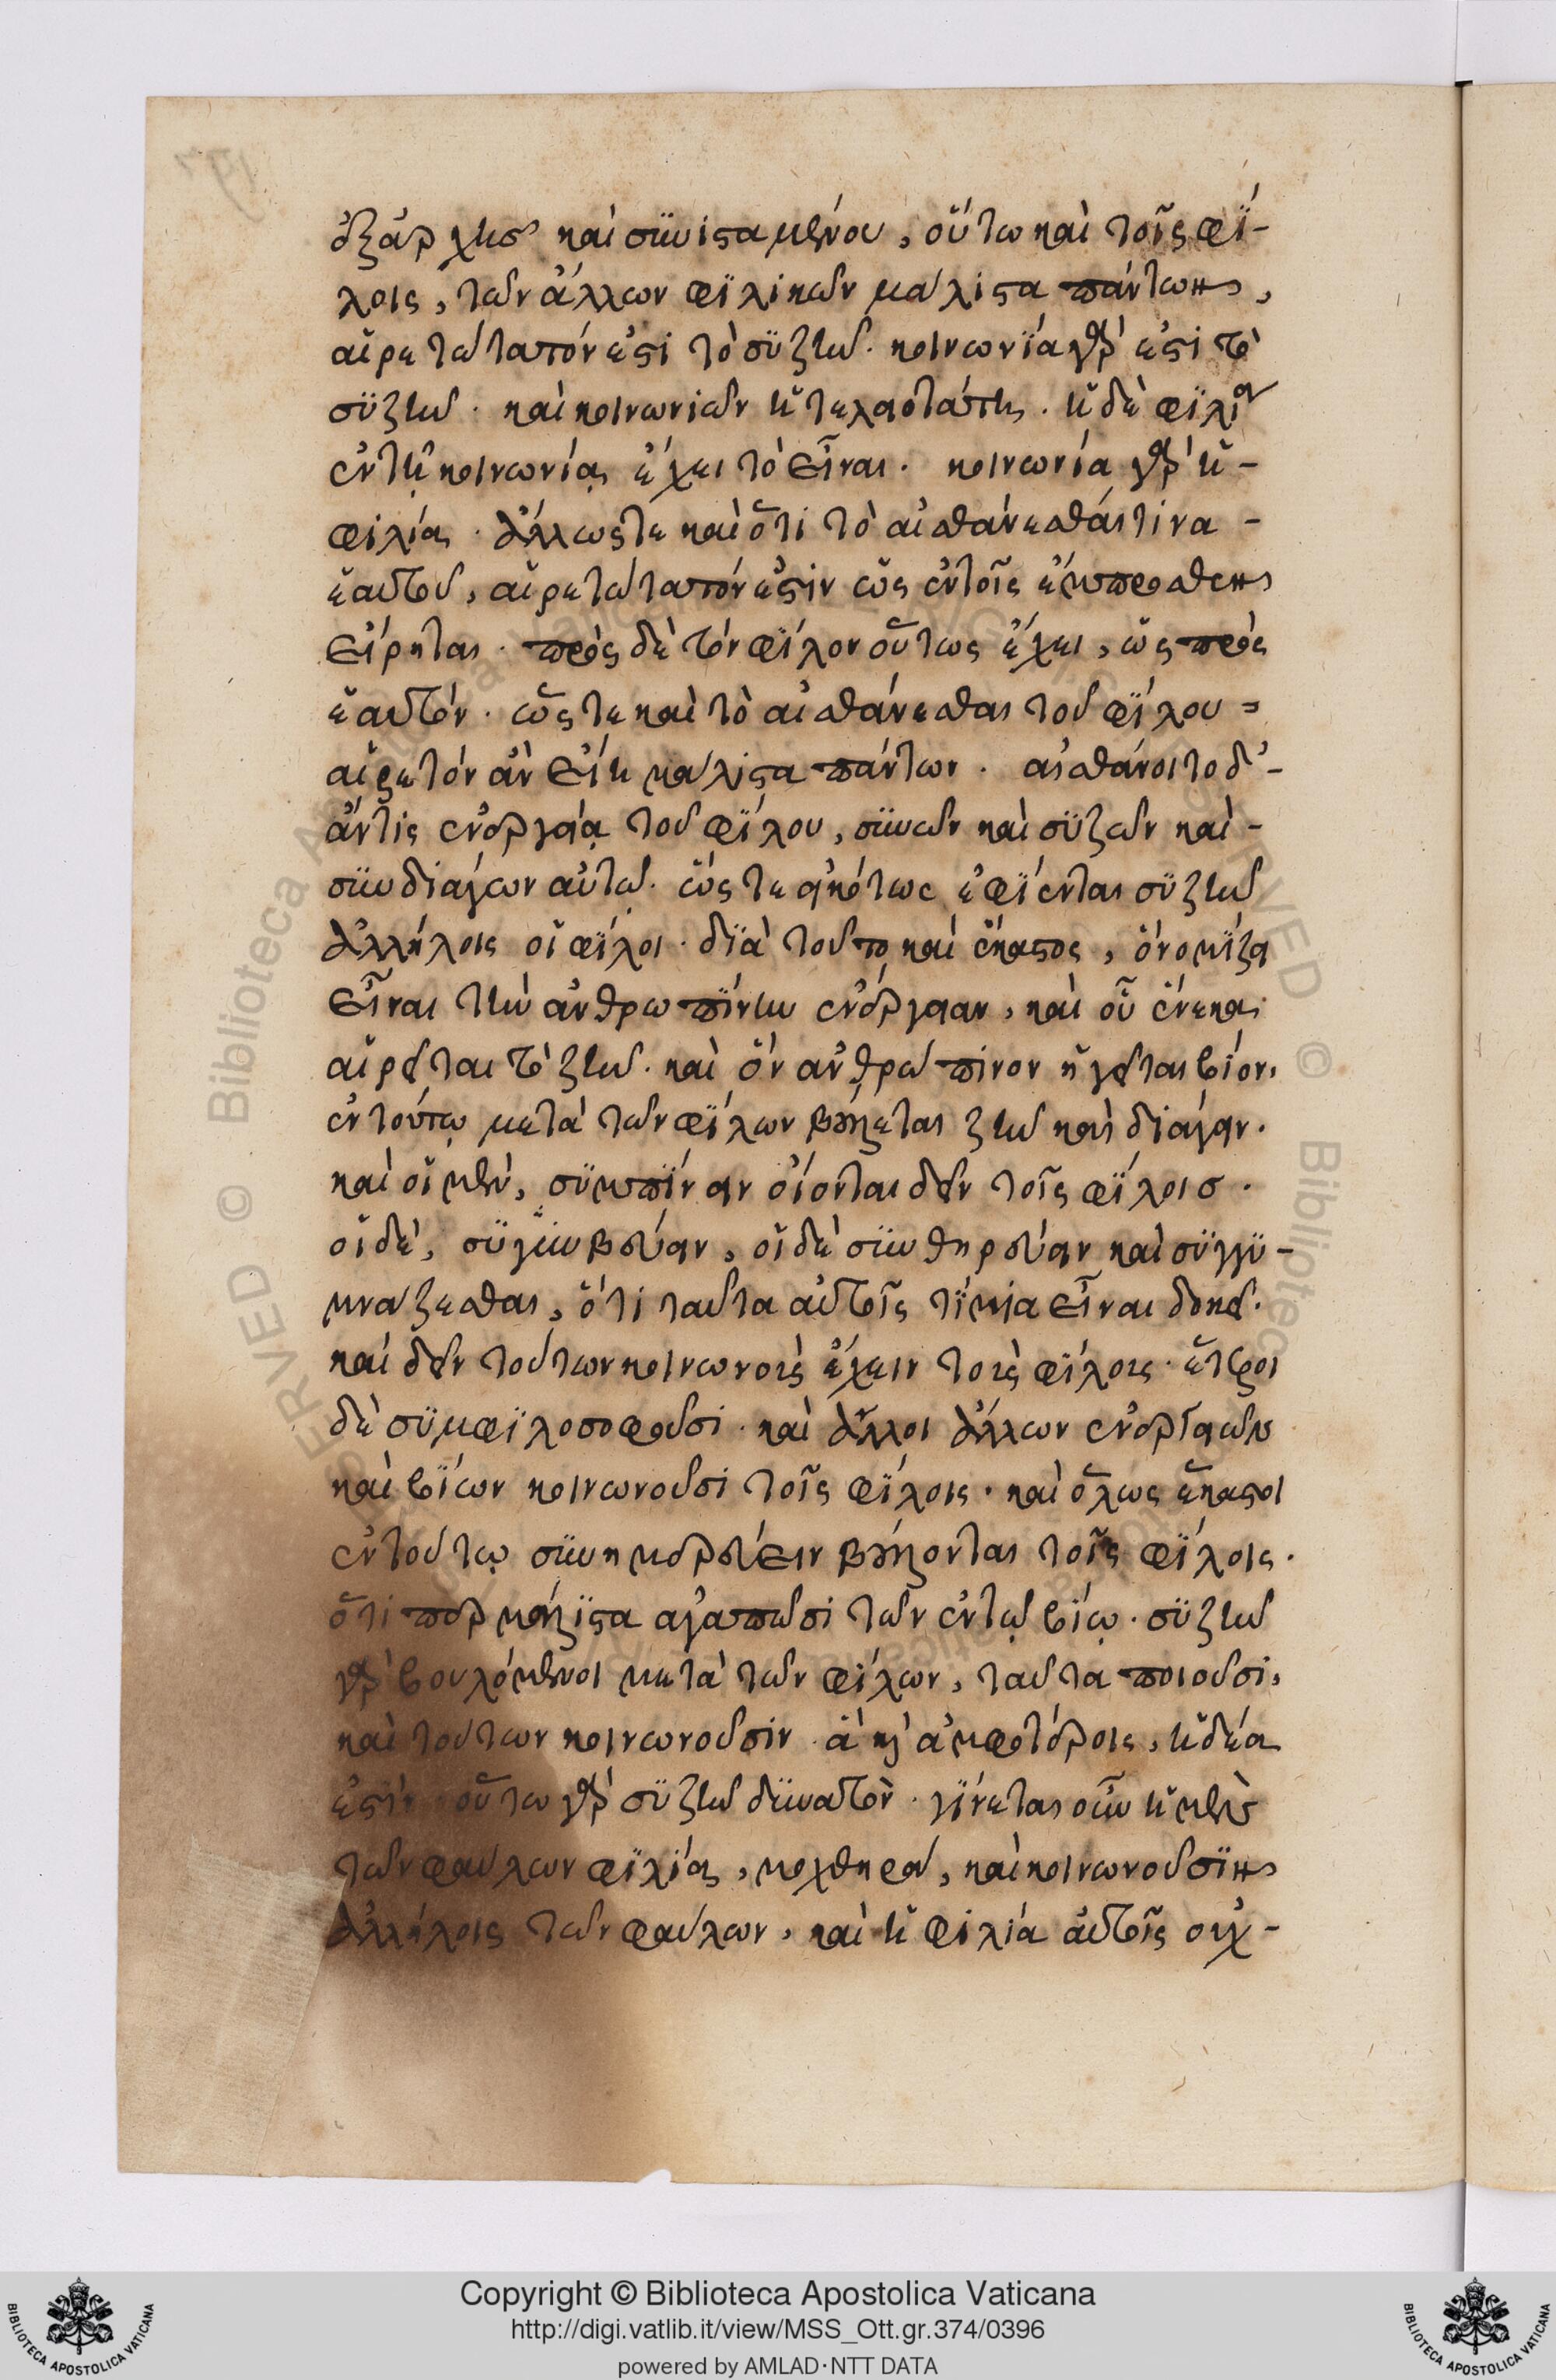 ἐξάρχης καὶ συνισταμένου, οὕτω καὶ τοῖς φί-
λοις, τῶν ἄλλων φιλικῶν μάλιστα πάντων,
αἱρετώτατόν ἐστι τὸ συζῆν. κοινωνία γάρ ἐστι τὸ
συζῆν. καὶ κοινωνιῶν ἡ τελαιοτάτη. ἡ δὲ φιλία
ἐν τῇ κοινωνίᾳ ἔχει τὸ εἶναι. κοινωνία γὰρ ἡ-
φιλία. ἄλλως τε καὶ ὅτι τὸ αἰσθάνεσθαί τινα-
ἑαυτοῦ, αἱρετώτατόν ἐστιν ὡς ἐν τοῖς ἔμπροσθεν
εἴρηται. πρὸς δὲ τὸν φίλον οὕτως ἔχει, ὡς πρὸς
ἑαυτόν. ὥστε καὶ τὸ αἰσθάνεσθαι τοῦ φίλου=
αἱρετόν ἂν εἴη μάλιστα πάντων. αἰσθάνοιτο δ'-
ἄν τις ἐνεργείᾳ τοῦ φίλου, συνὼν καὶ συζῶν καὶ-
συνδιάγων αὐτῷ. ὥστε εἰκότως ἐφίενται συζῆν
ἀλλήλοις οἱ φίλοι. διὰ τοῦτο καὶ ἕκαστος, ὃ νομίζει
εἶναι τὴν ἀνθρωπίνην ἐνέργειαν, καὶ οὗ ἕνεκα
αἱρεῖται τὸ ζῆν. καὶ ὃν ἀνθρώπινον ἡγεῖται βίον,
ἐν τούτῳ μετὰ τῶν φίλων βούλεται ζῆν καὶ διάγειν.
καὶ οἱ μὲν, συμπίνειν οἴονται δεῖν τοῖς φίλοις.
οἱ δὲ, συγκυβεύειν, οἱ δὲ συνθηρεύειν καὶ συγγυ-
μνάζεσθαι, ὅτι ταῦτα αὐτοῖς τίμια εἶναι δοκεῖ.
καὶ δεῖν τούτων κοινωνοὺς ἔχειν τοὺς φίλους. ἕτεροι
δὲ συμφιλοσοφοῦσι. καὶ ἄλλοι ἄλλων ἐνεργειῶν
καὶ βίων κοινωνοῦσι τοῖς φίλοις. καὶ ὅλως ἕκαστοι
ἐν τούτῳ συνημερεύειν βούλονται τοῖς φίλοις.
ὅτι περ μάλιστα ἀγαπῶσι τῶν ἐν τῷ βίῳ. συζῆν
γὰρ βουλόμενοι μετὰ τῶν φίλων, ταῦτα ποιοῦσι,
καὶ τούτων κοινωνοῦσιν ἃ καὶ ἀμφοτέροις, ἡδέα
ἐστίν. οὕτω γὰρ συζῆν δυνατόν. γίνεται οὖν ἡ μὲν
τῶν φαύλων φιλία, μοχθηρά, καὶ κοινωνοῦσιν
ἀλλήλοις τῶν φαύλων, καὶ ἡ φιλία αὐτοῖς οὐχ-
Copyright © Biblioteca Apostolica Vaticana
http://digi.vatlib.it/view/MSS_Ott.gr.374/0396
powered by AMLAD·NTT DATA